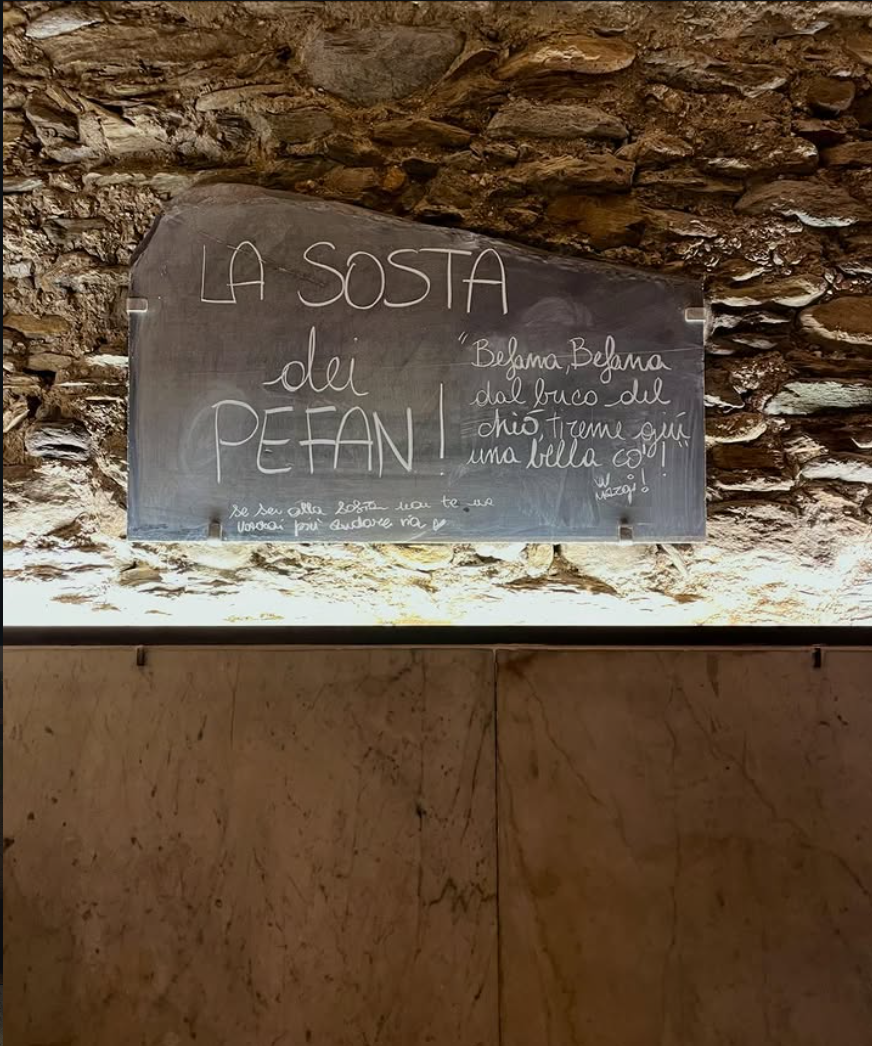 LA SOSTA
dei
PEFAN!
"Befana, Befana
dal buco del
chiò, tireme giù
una bella co'!"
W
se sei alla sosta non te ne
vorrai più andare via ♥